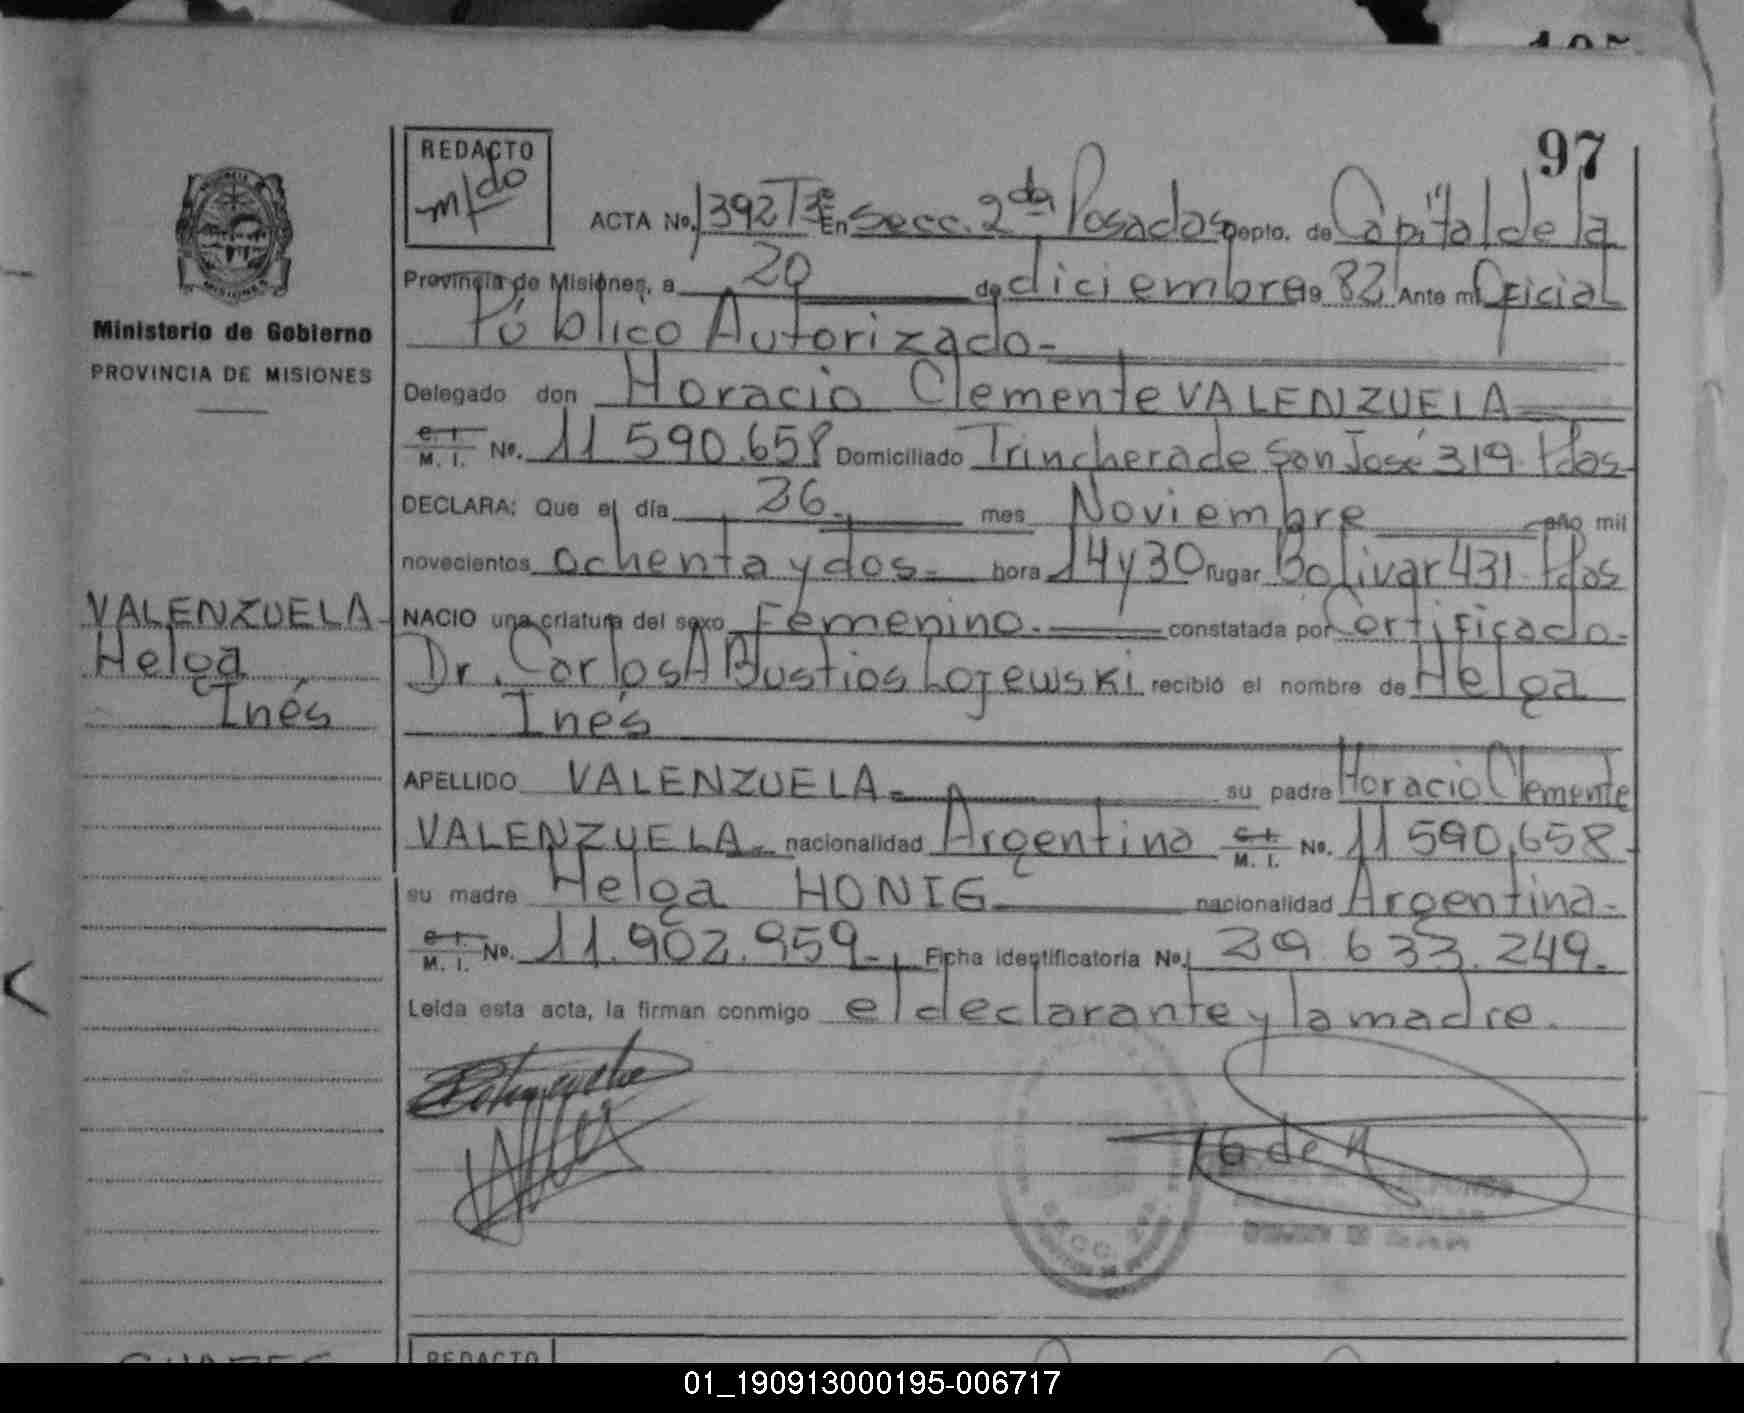 97
REDACTO
m/do
ACTA No. 1392 T3º En Secc. 2da Posadas Depto. de Capital de la
Provincia de Misiones, a 20 de diciembre 19 82 Ante mi Oficial
Público Autorizado.-
Ministerio de Gobierno
PROVINCIA DE MISIONES
Delegado don Horacio Clemente VALENZUELA
C. I. M. I. No. 11.590.658 Domiciliado Trinchera de San José 319. Pdas.
DECLARA: Que el día 26.- mes Noviembre año mil
novecientos ochenta y dos.- hora 14 y 30 lugar Bolivar 431. Pdas
NACIO una criatura del sexo Femenino.- constatada por Certificado.
Dr. Carlos A Bustios Lojewski recibió el nombre de Helga
Inés
VALENZUELA-
Helga
Inés
APELLIDO VALENZUELA.- su padre Horacio Clemente
VALENZUELA.- nacionalidad Argentino C. I. M. I. No. 11 590.658-
su madre Helga HONIG nacionalidad Argentina.-
C. I. M. I. No. 11.902.959.- Ficha identificatoria No. 29.633.249.-
Leída esta acta, la firman conmigo el declarante y la madre.
REDACTO
01_190913000195-006717